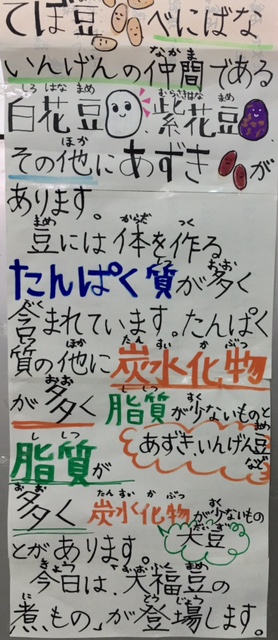 てぼ豆 べにばな
いんげんの仲間である
白花豆、紫花豆、
その他にあずきが
あります。
豆には体を作る
たんぱく質が多く
含まれています。たんぱく
質の他に炭水化物
が多く脂質が少ないものと
あずき、いんげん豆など
脂質が
多く炭水化物が少ないもの
大豆
とがあります。
今日は、「大福豆の
煮もの」が登場します。